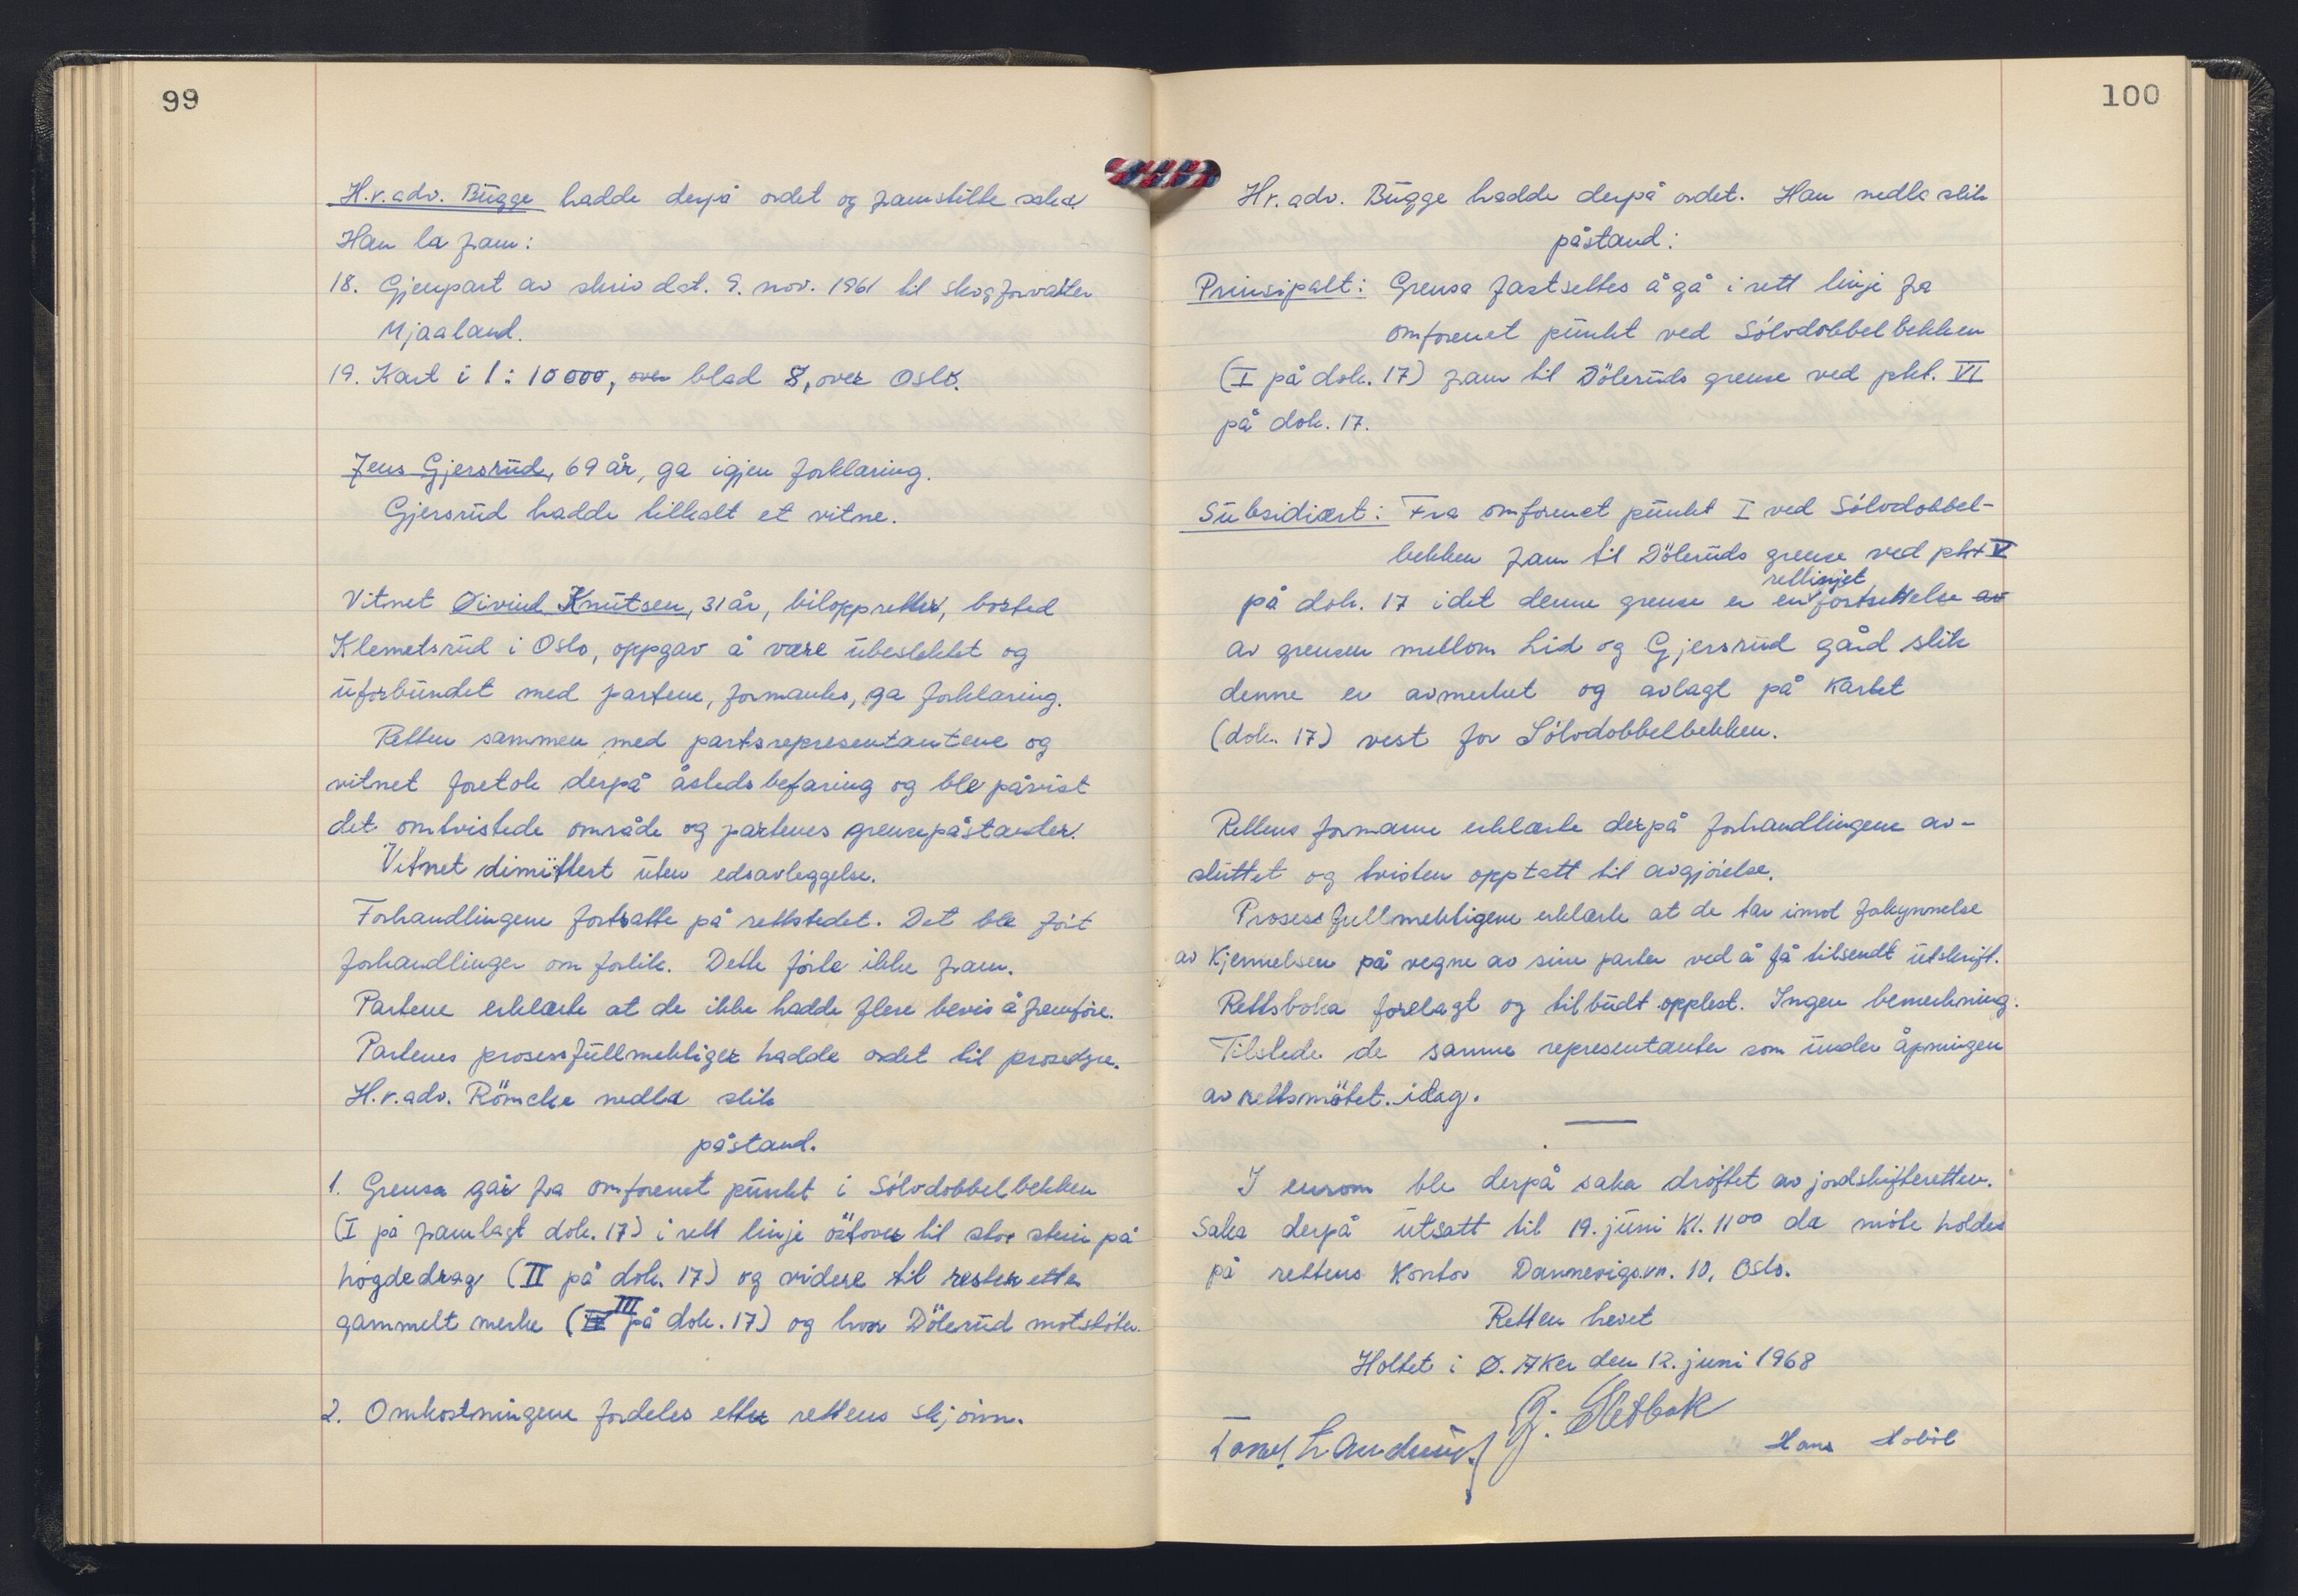 99
H.r.adv. Bugge hadde derpå ordet og framstilte saka.
Han la fram:
18. Gjenpart av skriv dat. 9. nov. 1961 til skogforvalter
Mjaaland.
19. Kart i 1:10000, over blad 8, over Oslo.
Jens Gjersrud, 69 år, ga igjen forklaring.
Gjersrud hadde tilkalt et vitne.
Vitnet Øivind Knutsen, 31 år, biloppretter, bosted
Klemetsrud i Oslo, oppgav å være ubeslektet og
uforbundet med partene, formantes, ga forklaring.
Retten sammen med partsrepresentantene og
vitnet foretok derpå åstedsbefaring og ble påvist
det omtvistede område og partenes grensepåstander.
Vitnet dimittert uten edsavleggelse.
Forhandlingene fortsatte på rettstedet. Det ble ført
forhandlinger om forlik. Dette førte ikke fram.
Partene erklærte at de ikke hadde flere bevis å fremføre.
Partenes prosessfullmektiger hadde ordet til prosedyre.
H.r.adv. Römcke nedla slik
påstand.
1. Grensa går fra omforenet punkt i Sølvdobbelbekken
(I på framlagt dok. 17) i rett linje östover til stor stein på
høgdedrag (II på dok. 17) og videre til rester etter
gammelt merke (III på dok. 17) og hvor Dölerud motstøter.
2. Omkostningene fordeles etter rettens skjønn.
100
Hr. adv. Bugge hadde derpå ordet. Han nedla slik
påstand:
Prinsipalt: Grensa fastsettes å gå i rett linje fra
omforenet punkt ved Sølvdobbelbekken
(I på dok. 17) fram til Döleruds grense ved pkt. VI
på dok. 17.
Subsidiært: Fra omforenet punkt I ved Sølvdobbel-
bekken fram til Döleruds grense ved pkt V
rettlinjet
på dok. 17 idet denne grense er en fortsettelse av
av grensen mellom Lid og Gjersrud gård slik
denne er avmerket og avlagt på kartet
(dok. 17) vest for Sølvdobbelbekken.
Rettens formann erklærte derpå forhandlingene av-
sluttet og tvisten opptatt til avgjørelse.
Prosessfullmektigene erklærte at de tar imot forkynnelse
av kjennelsen på vegne av sine parter ved å få tilsendt utskrift.
Rettsboka forelagt og tilbudt opplest. Ingen bemerkning.
Tilstede de samme representanter som under åpningen
av rettsmötet idag.
I enrom ble derpå saka drøftet av jordskifteretten.
Saka derpå utsatt til 19. juni kl. 11⁰⁰ da møte holdes
på rettens kontor Dannevigsvn. 10, Oslo.
Retten hevet
Holtet i Ø. Aker den 12. juni 1968
Hans